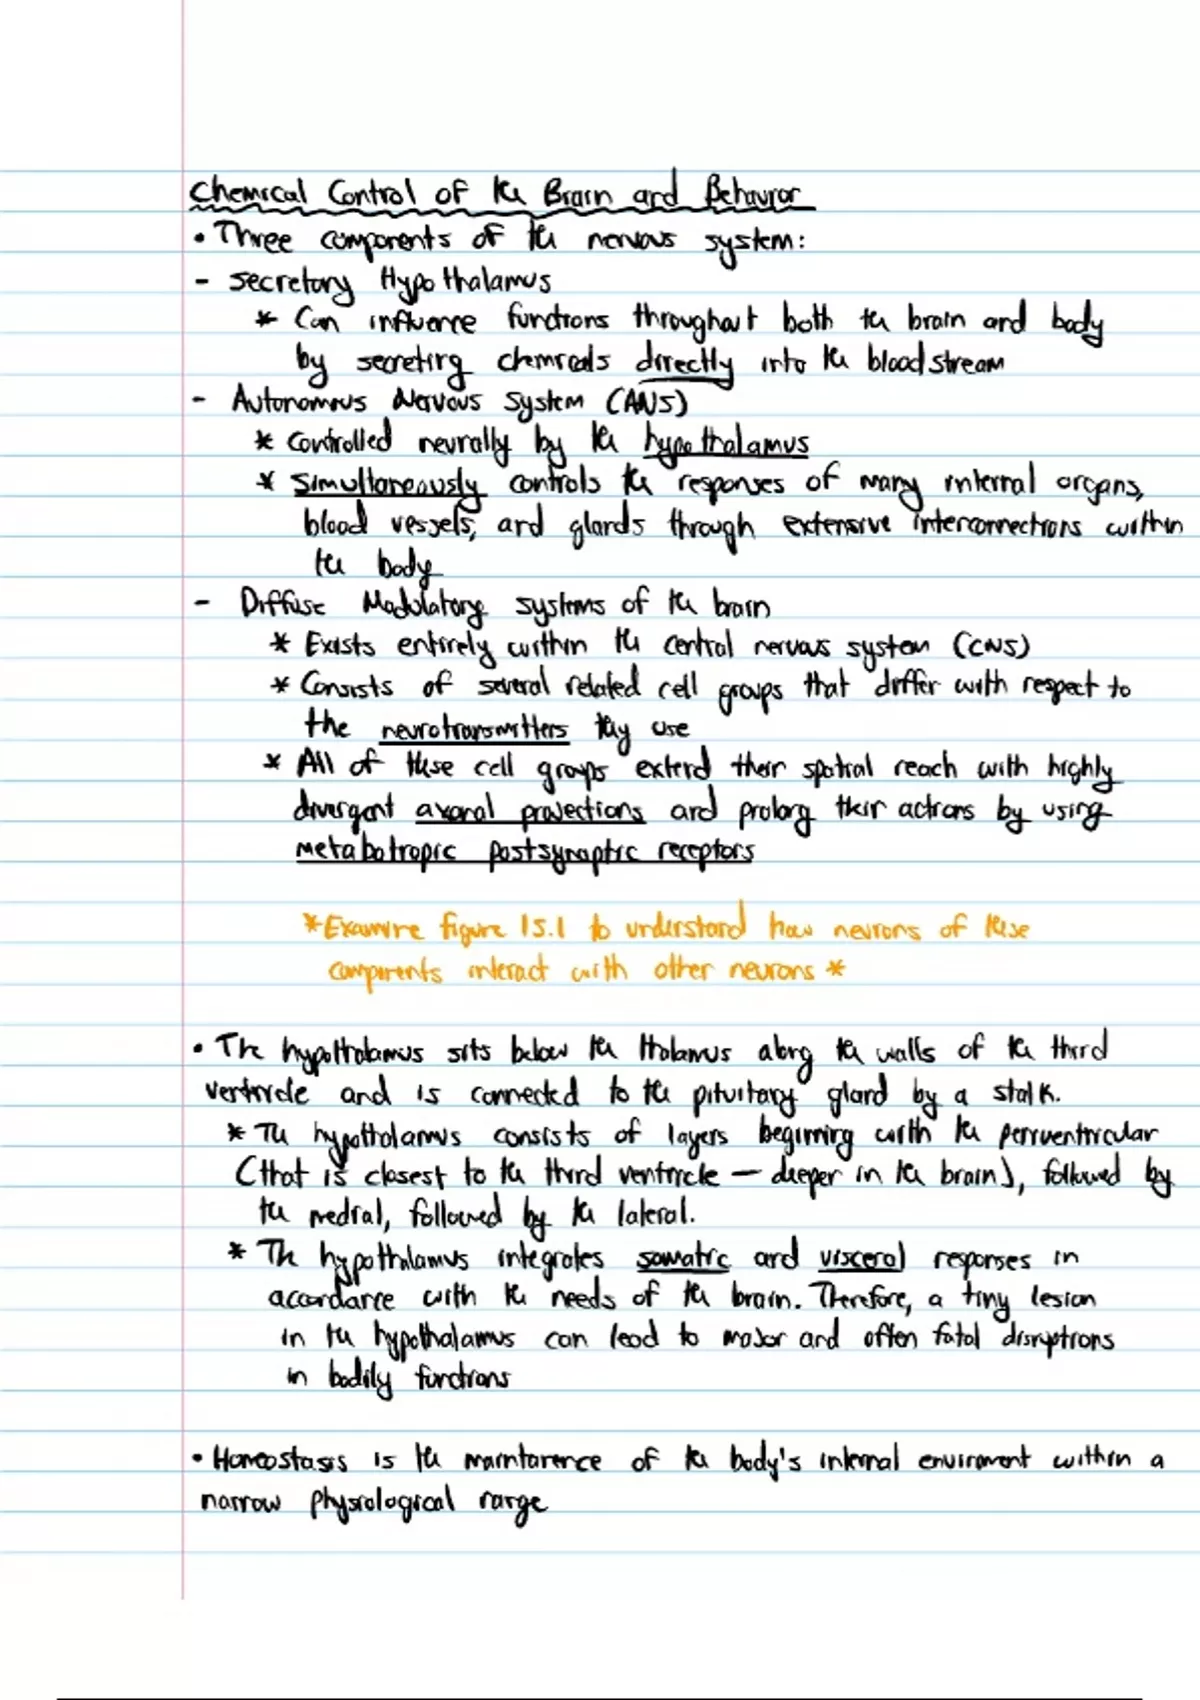 Chemical Control of the Brain and Behavior
• Three components of the nervous system:
- Secretory Hypothalamus
* Can influence functions throughout both the brain and body
by secreting chemicals directly into the bloodstream
- Autonomous Nervous System (ANS)
* Controlled neurally by the hypothalamus
* Simultaneously controls the responses of many internal organs,
blood vessels, and glands through extensive interconnections within
the body
- Diffuse Modulatory systems of the brain
* Exists entirely within the central nervous system (CNS)
* Consists of several related cell groups that differ with respect to
the neurotransmitters they use
* All of these cell groups extend their spatial reach with highly
divergent axonal projections and prolong their actions by using
metabotropic postsynaptic receptors
*Examine figure 15.1 to understand how neurons of these
components interact with other neurons *
• The hypothalamus sits below the thalamus along the walls of the third
ventricle and is connected to the pituitary gland by a stalk.
* The hypothalamus consists of layers beginning with the periventricular
(that is closest to the third ventricle — deeper in the brain), followed by
the medial, followed by the lateral.
* The hypothalamus integrates somatic and visceral responses in
accordance with the needs of the brain. Therefore, a tiny lesion
in the hypothalamus can lead to major and often fatal disruptions
in bodily functions
• Homeostasis is the maintenance of the body's internal enviroment within a
narrow physiological range